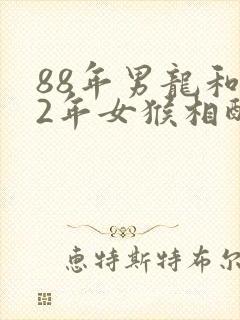 88年男龍和
2年女猴相配
惠特斯特布尔